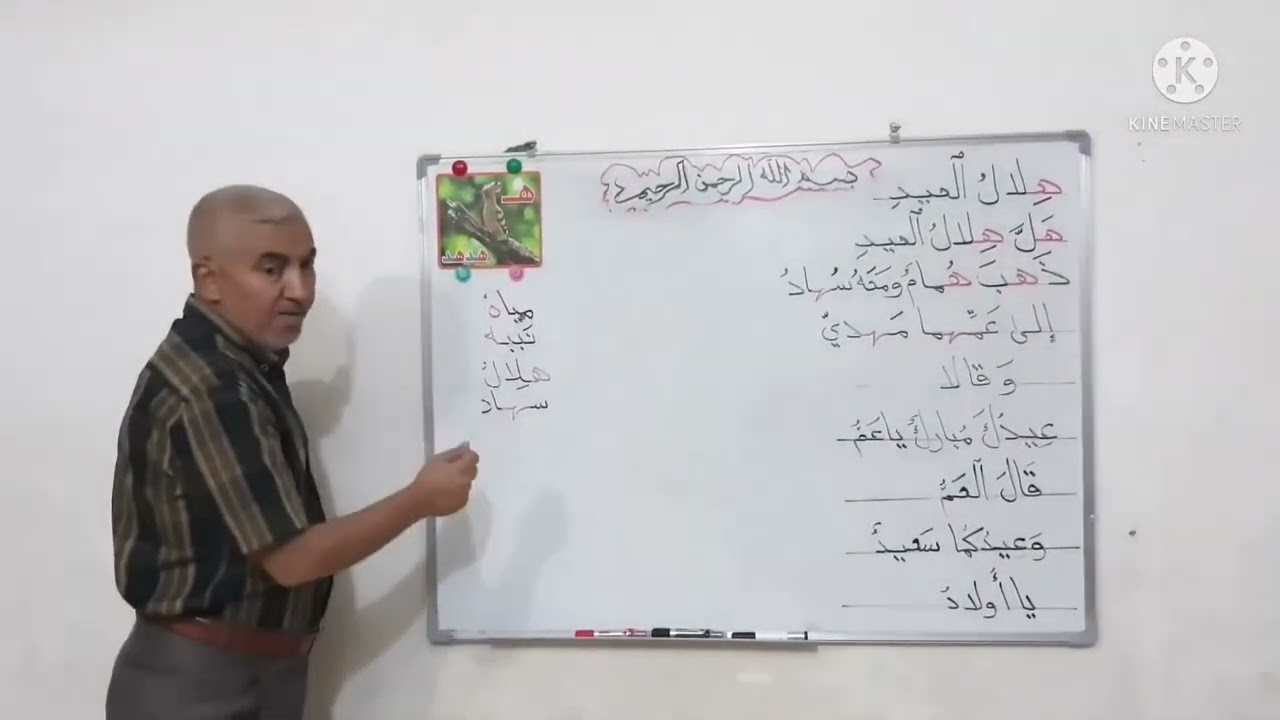 بسم الله الرحمن الرحيم
هِلالُ ٱلْعيدِ
هَلَّ هِلالُ ٱلْعيدِ
ذَهَبَ هُمامٌ وَمَعَهُ سُهادُ
إِلىٰ عَمِّهِما مَهديّ
وَقالا
عِيدُكَ مُبارَكٌ ياعَمُّ
قالَ ٱلْعَمُّ
وَعيدُكُما سَعيدٌ
يا أَولادُ
هـ
هدهد
مياهٌ
هلالٌ
سهاد
KINEMASTER